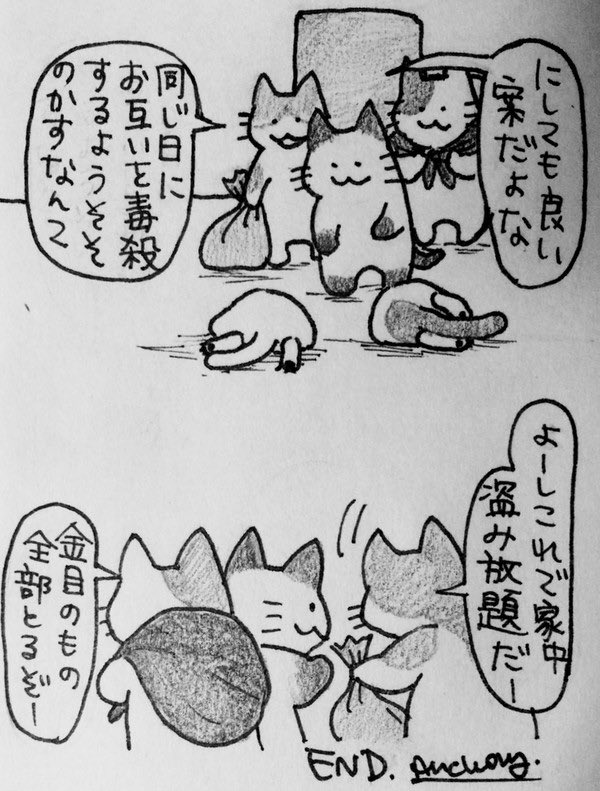 にしても良い
案だよな
同じ日に
お互いを毒殺
するようそそ
のかすなんて
よーしこれで家中
盗み放題だー
金目のもの
全部とるぞー
END.